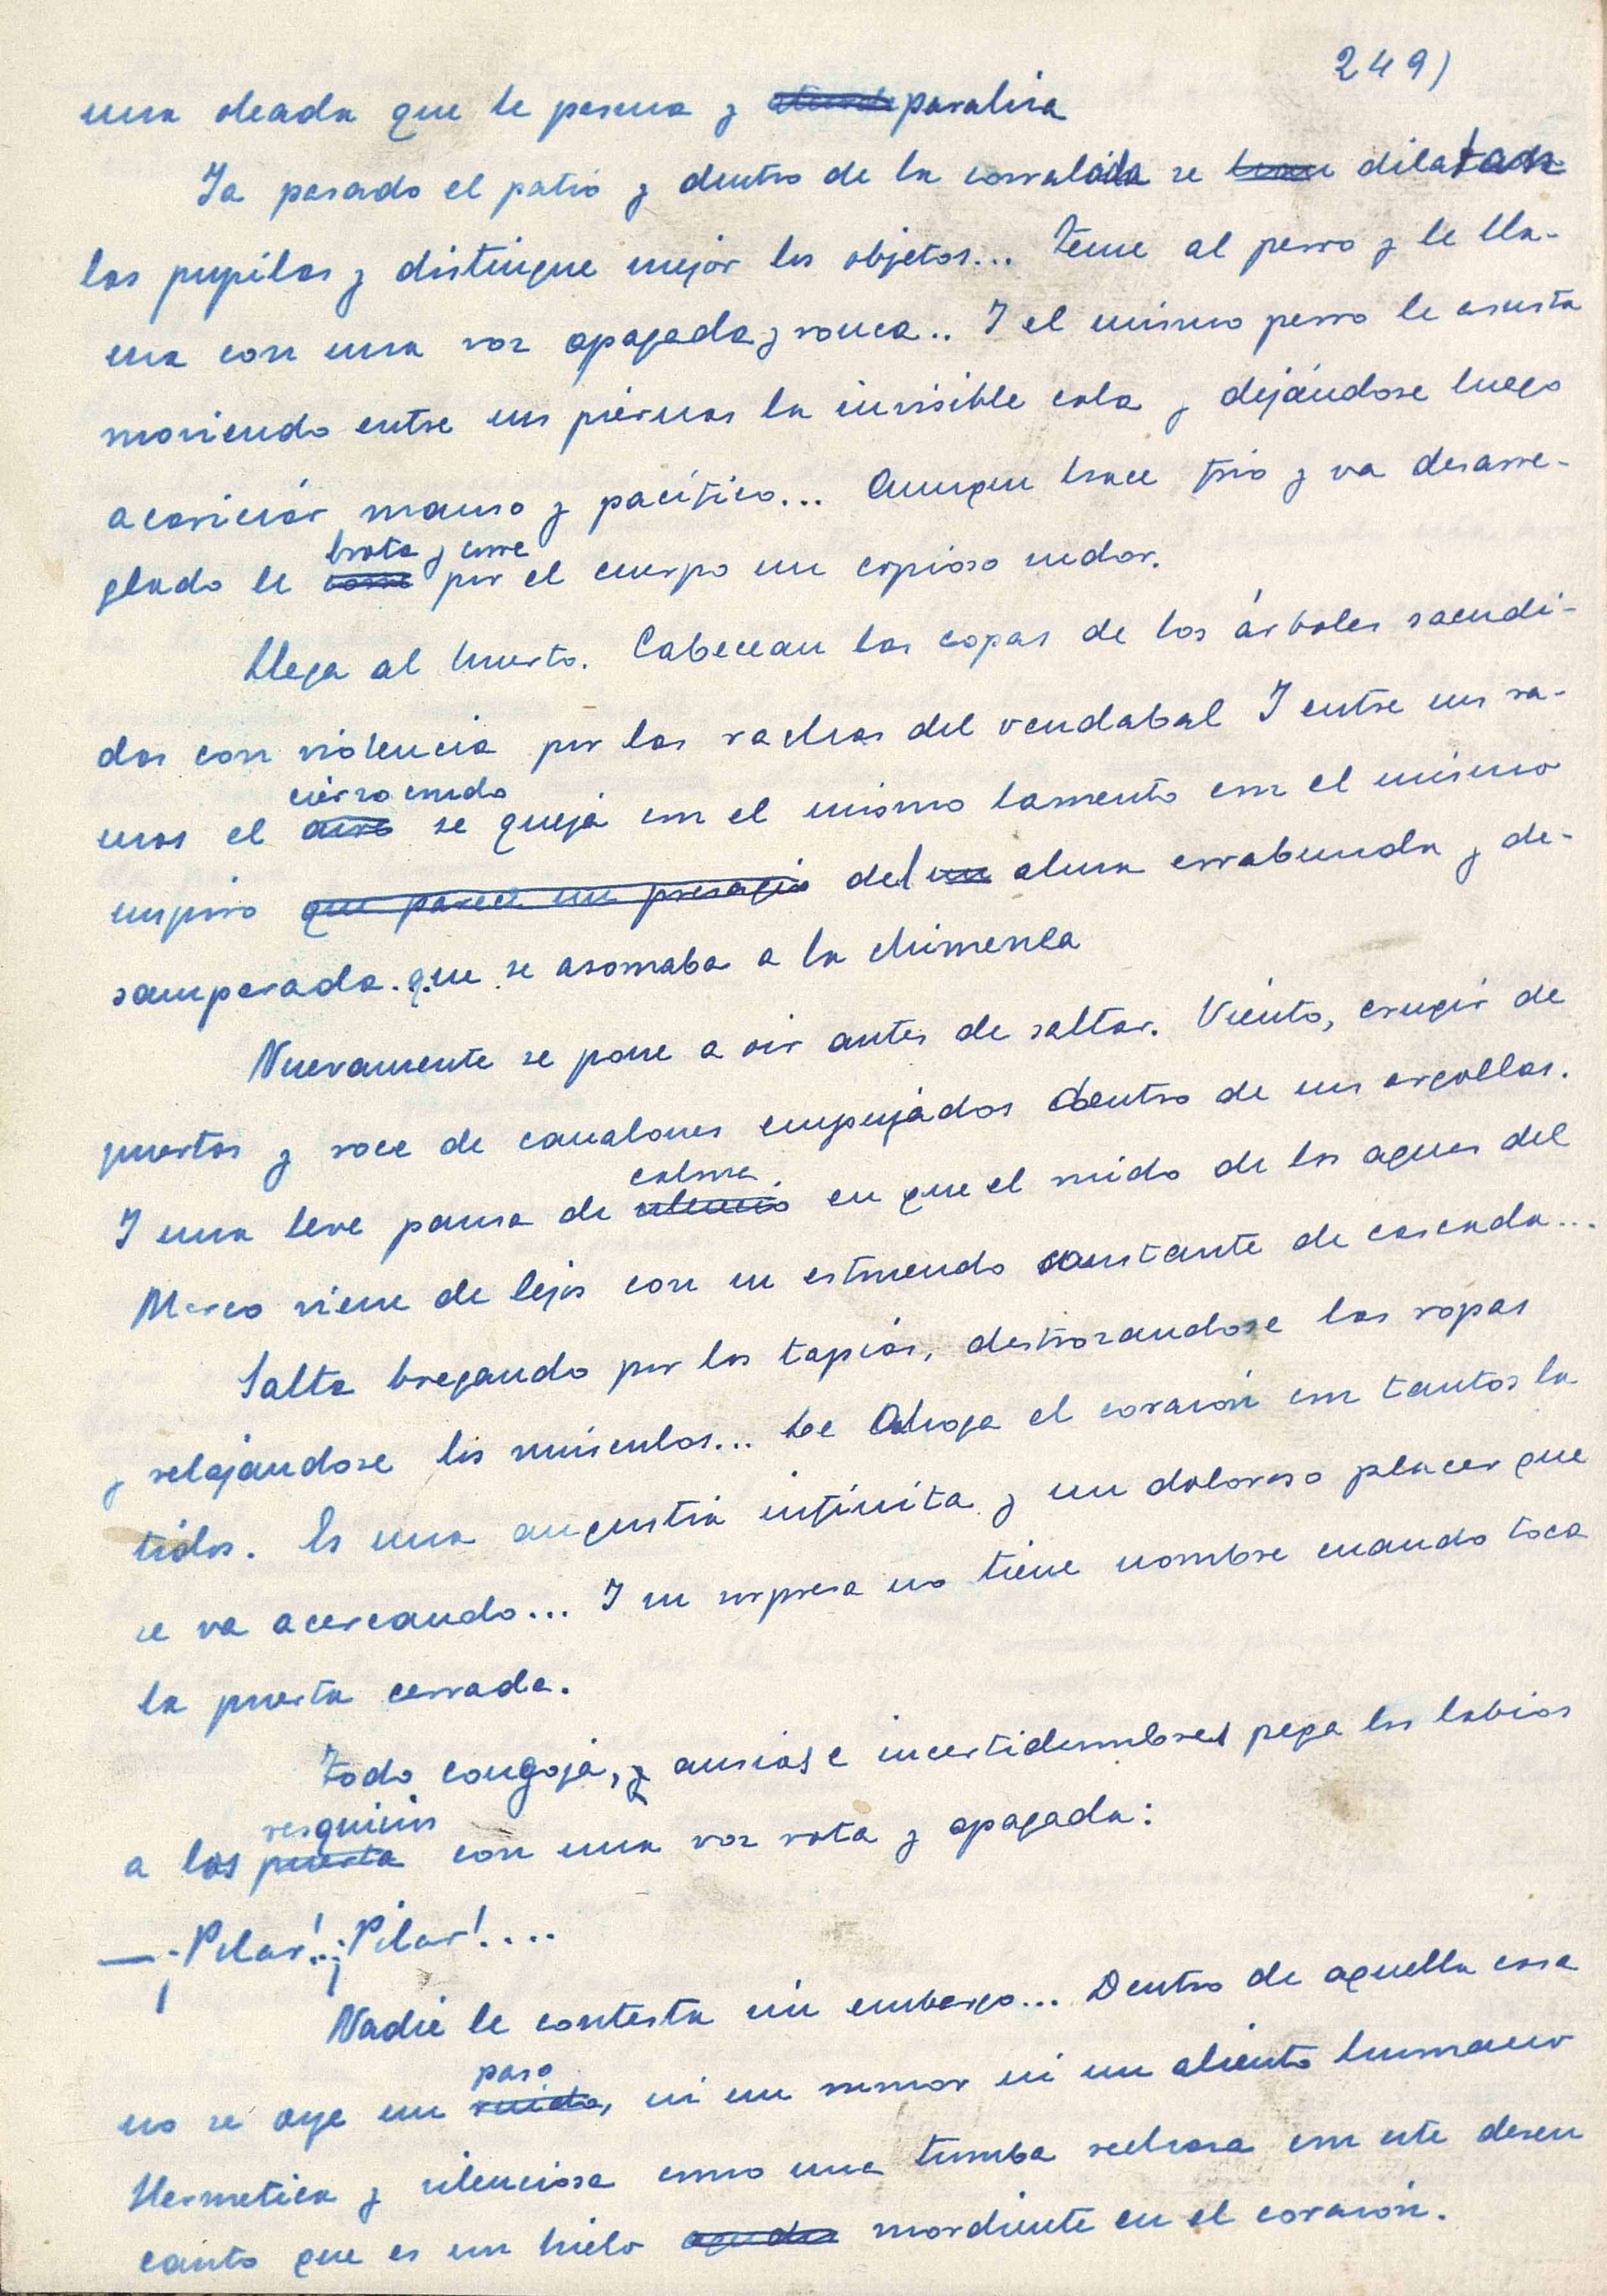 249)
una oleada que le pesma y ~~aturde~~ paraliza
Ya pasado el patio y dentro de la corralada se ~~tien~~ dilatadr
las pupilas y distingue mejor los objetos... Teme al perro y le lla-
ma con una voz apagada y ronca.. Y el mismo perro le asusta
moviendo entre sus piernas la invisible cola y dejándose luego
acariciar manso y pacífico... Aunque hace frio y va desarre-
brota y corre
glado le ~~corre~~ por el cuerpo un copioso sudor.
Llega al huerto. Cabecean las copas de los árboles sacudi-
dos con violencia por las rachas del vendabal Y entre sus ra-
cierzo crudo
mas el ~~aire~~ se queja con el mismo lamento con el mismo
suspiro ~~que parece un presagio~~ del ~~un~~ alma errabunda y de-
samparada. que se asomaba a la chimenea
Nuevamente se pone a oir antes de saltar. Viento, crugir de
puertas y roce de canalones empujados dentro de sus argollas.
calma
Y una leve pausa de ~~silencio~~ en que el ruido de las aguas del
Marco viene de lejos con su estruendo constante de cascada...
Salta bregando por las tapias, destrozandose las ropas
y relajandose los músculos... Le Ahoga el corazón con tantos la
tidos. Es una angustia infinita y un doloroso placer que
se va acercando... Y su sorpresa no tiene nombre cuando toca
la puerta cerrada.
Todo congoja, y ansias e incertidumbres pega los labios
resquicios
a las ~~puerta~~ con una voz rota y apagada:
—¡Pilar!..¡Pilar!....
Nadie le contesta sin embargo... Dentro de aquella casa
paso
no se oye un ~~ruido~~, ni un rumor ni un aliento humano
Hermetica y silenciosa como una tumba rechaza con este desen
canto que es un hielo ~~agudo~~ mordiente en el corazón.